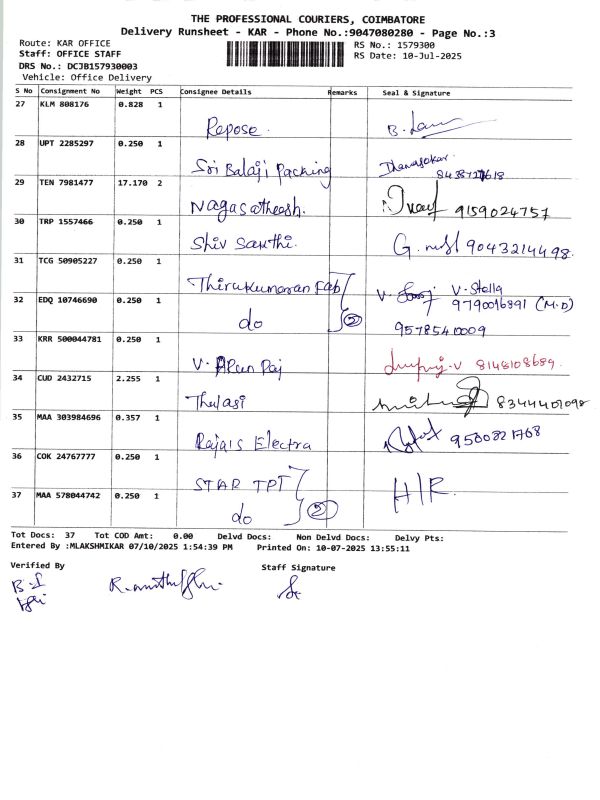 THE PROFESSIONAL COURIERS, COIMBATORE
Delivery Runsheet - KAR - Phone No.:9047080280 - Page No.:3
Route: KAR OFFICE
Staff: OFFICE STAFF
DRS No.: DCJB157930003
Vehicle: Office Delivery
RS No.: 1579300
RS Date: 10-Jul-2025
S No Consignment No Weight PCS Consignee Details Remarks Seal & Signature
27 KLM 808176 0.828 1
Repose.
28 UPT 2285297 0.250 1
Sri Balaji Packing
29 TEN 7981477 17.170 2
Nagasatheesh. 9159024757
30 TRP 1557466 0.250 1
Shiv Santhi. 9043214498.
31 TCG 50905227 0.250 1
Thirukumaran Fab V. Stella
32 EDQ 10746690 0.250 1 9790016391 (M.D)
do 2 95785410009
33 KRR 500044781 0.250 1
V. Arun Raj 8148108689.
34 CUD 2432715 2.255 1
Thulasi 8344401098
35 MAA 303984696 0.357 1
Rajais Electra 9500821768
36 COK 24767777 0.250 1
STAR TPT H/R.
37 MAA 578044742 0.250 1
do 2
Tot Docs: 37 Tot COD Amt: 0.00 Delvd Docs: Non Delvd Docs: Delvy Pts:
Entered By :MLAKSHMIKAR 07/10/2025 1:54:39 PM Printed On: 10-07-2025 13:55:11
Verified By Staff Signature